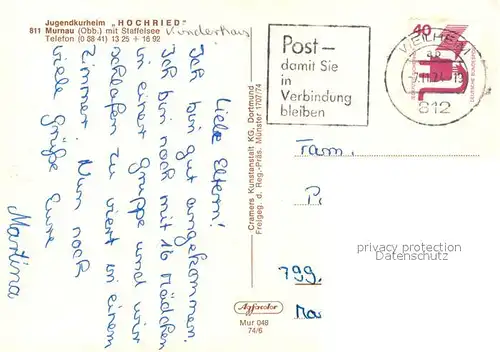 Jugendkurheim „HOCHRIED"
811 Murnau (Obb.) mit Staffelsee
Telefon (0 88 41) 13 25 + 16 92
Kinderhaus
Liebe Eltern!
Ich bin gut angekommen.
Ich bin noch mit 16 Mädchen
in einer Gruppe und wir
schlafen zu viert in einem
Zimmer. Nun noch
viele Grüße Eure
Martina
Cramers Kunstanstalt KG, Dortmund
Freigeg. d. Reg.-Präs. Münster 1707/74
Agfacolor
Mur 048
74/6
Post –
damit Sie
in
Verbindung
bleiben
WEILHEIM
812
40
Fam.
799
privacy protection
Datenschutz